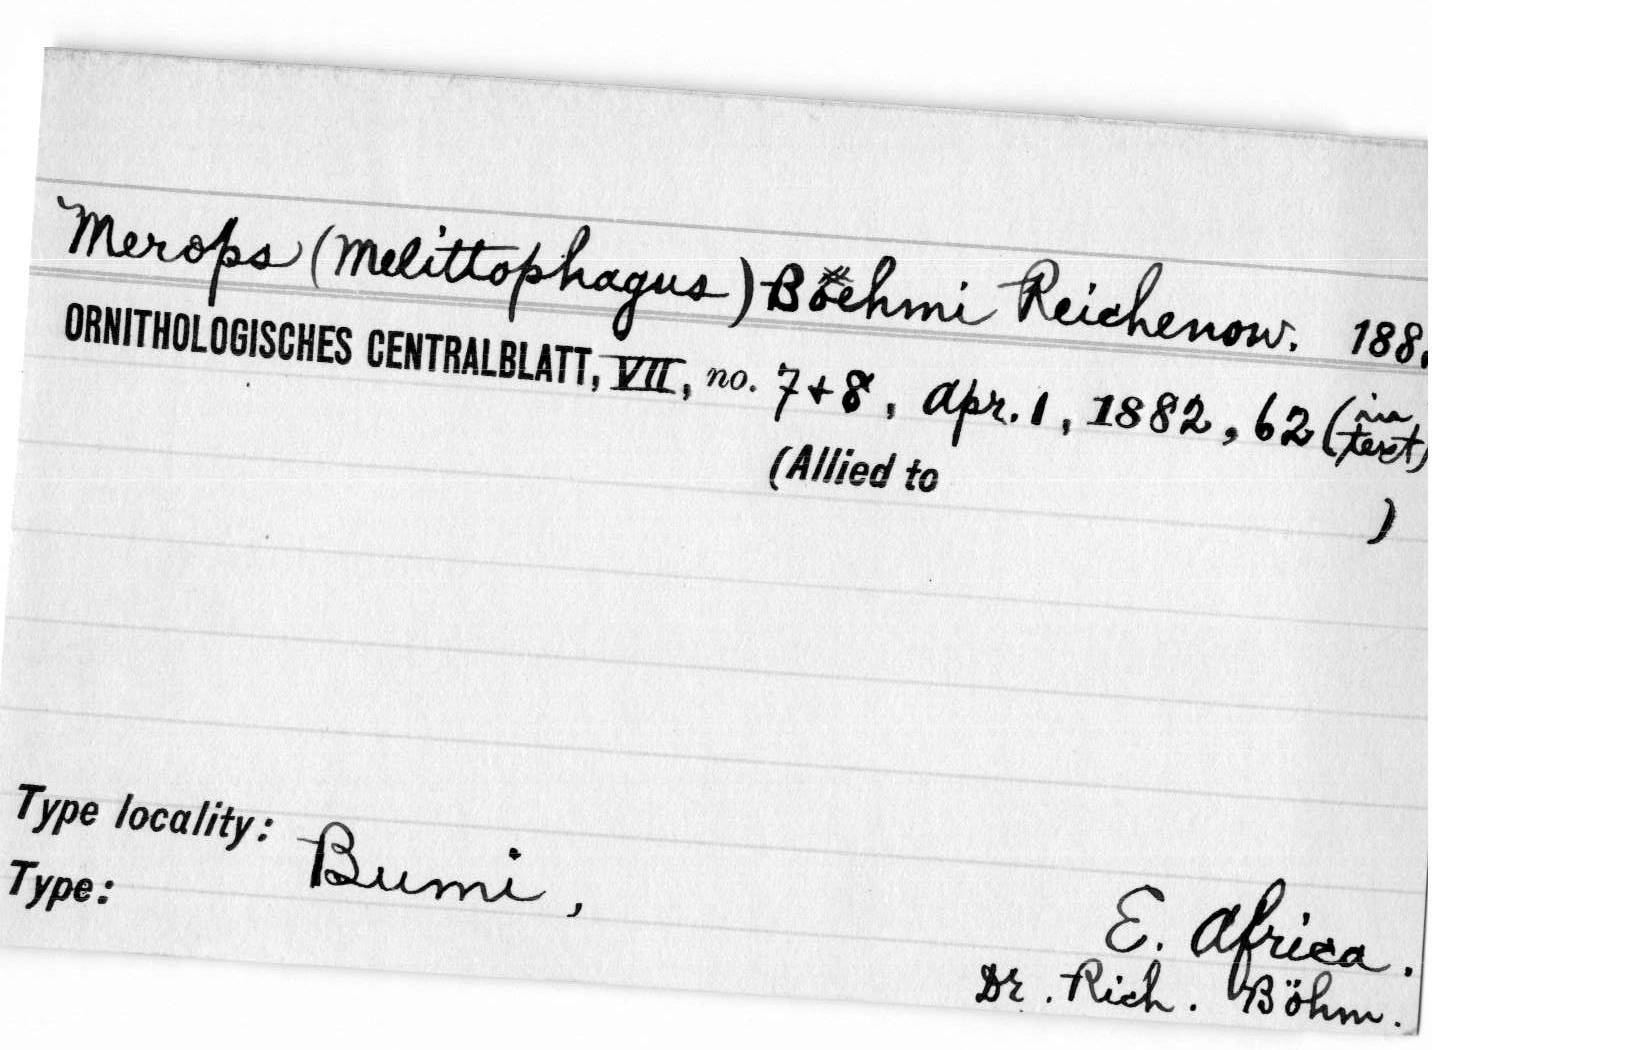 Merops (Melittophagus) Boehmi Reichenow. 188
ORNITHOLOGISCHES CENTRALBLATT, VII, no. 7+8, Apr. 1, 1882, 62 (in text)
(Allied to )
Type locality: Bumi, E. Africa.
Type: Dr. Rich. Böhm.